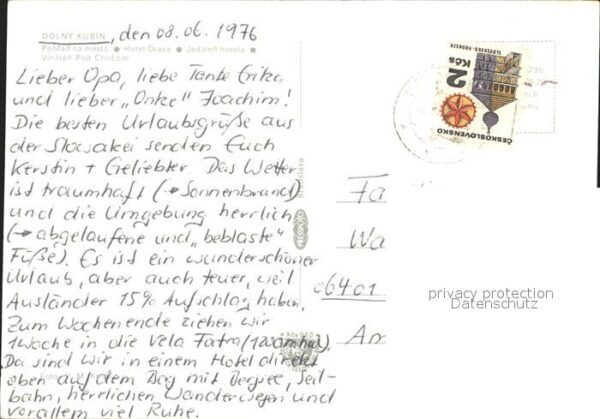 DOLNÝ KUBÍN, den 08.06.1976
Pohľad na mesto ● Hotel Orava ● Jedáleň hotela ●
Vináreň Pod Chočom
Lieber Opa, liebe Tante Erika
und lieber „Onkel" Joachim!
Die besten Urlaubsgrüße aus
der Slowakei senden Euch
Kerstin + Geliebter Das Wetter
ist traumhaft (→ Sonnenbrand)
und die Umgebung herrlich
(→ abgelaufene und „beblaste"
Füße). Es ist ein wunderschöner
Urlaub, aber auch teuer, weil
Ausländer 15% Aufschlag haben.
Zum Wochenende ziehen wir
1 Woche in die Vela Fatra (1200mhoch).
Da sind wir in einem Hotel direkt
oben auf dem Berg mit Bergsee, Seil-
bahn, herrlichen Wanderwegen und
vor allem viel Ruhe.
2 Kčs
SLOVENSKO-VAJNORY
ČESKOSLOVENSKO
PRESSFOTO
Bratislava
Fa
Wa
06401
Am
privacy protection
Datenschutz